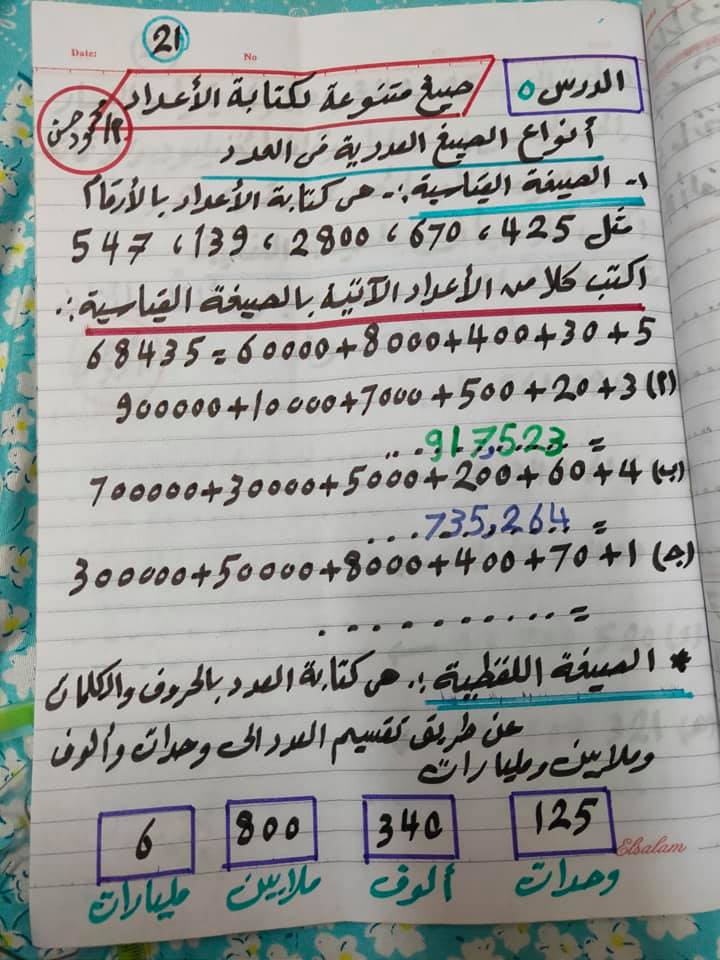 21
Date:
No
الدرس 5
صيغ متنوعة لكتابة الأعداد
أ/محمود حسن
أنواع الصيغ العددية فى العدد
1- الصيغة القياسية :- هى كتابة الأعداد بالأرقام
مثل 425 ، 670 ، 2800 ، 139 ، 547
اكتب كلا من الأعداد الآتية بالصيغة القياسية :.
68435 = 60000+8000+400+30+5
(أ) 900000+10000+7000+500+20+3
= 917,523
(ب) 700000+30000+5000+200+60+4
= 735,264
(جـ) 300000+50000+8000+400+70+1
= ..........
* الصيغة اللفظية :. هى كتابة العدد بالحروف والكلمات
عن طريق تقسيم العدد الى وحدات وألوف
وملايين ومليارات
6 800 340 125
مليارات ملايين ألوف وحدات
Elsalam